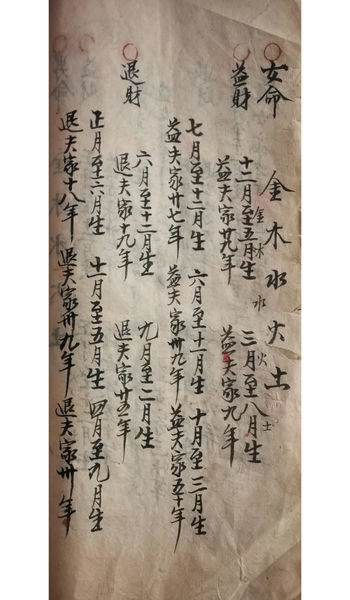 女命 金木水火土
金木 水 火 土
益財 十二月至五月生 三月至八月生
益夫家卅九年 益夫家九年
七月至十二月生 六月至十一月生 十月至三月生
益夫家卅七年 益夫家卅九年 益夫家五十年
退財 六月至十二月生 九月至二月生
退夫家十九年 退夫家廿五年
正月至六月生 十一月至五月生 四月至九月生
退夫家十八年 退夫家卅九年 退夫家卅年